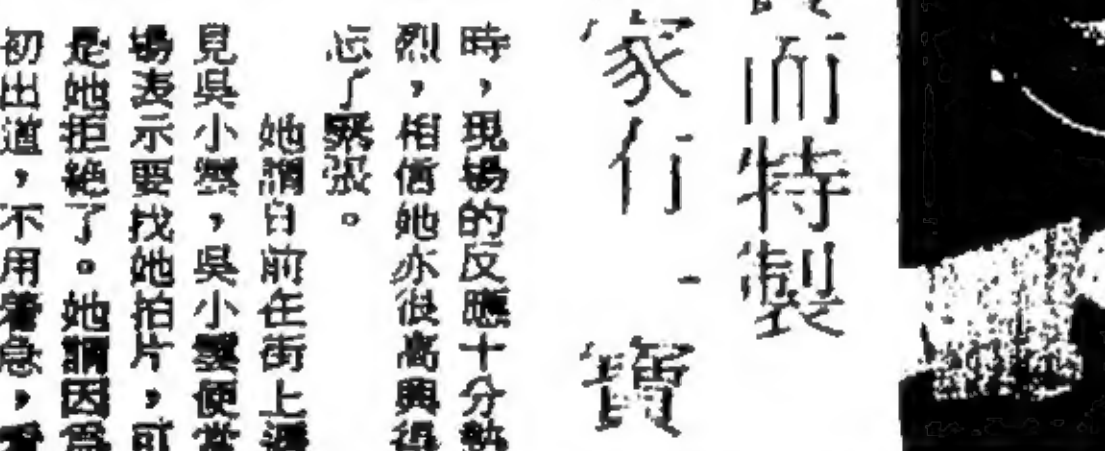 而特製
家行．寶
時，現場的反應十分熱
烈，相信她亦很高興得
忘了緊張。
她謂日前在街上遇
見吳小雲，吳小雲便當
場表示要找她拍片，可
是她拒絕了。她謂因為
初出道，不用着急，看